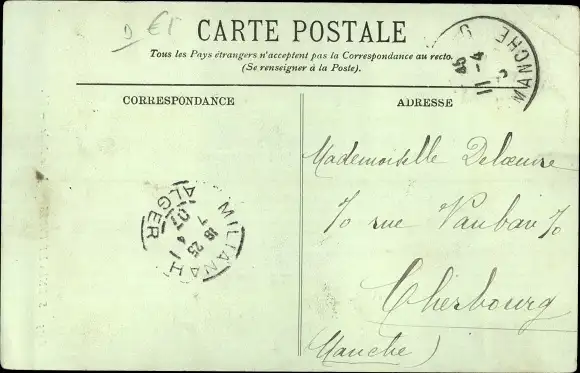 CARTE POSTALE
Tous les Pays étrangers n'acceptent pas la Correspondance au recto.
(Se renseigner à la Poste).
CORRESPONDANCE
ADRESSE
Mademoiselle
rue Vauban
Cherbourg
(Manche)
MILIANAH
ALGER
18 25
7 4
07
MANCHE
11 - 4